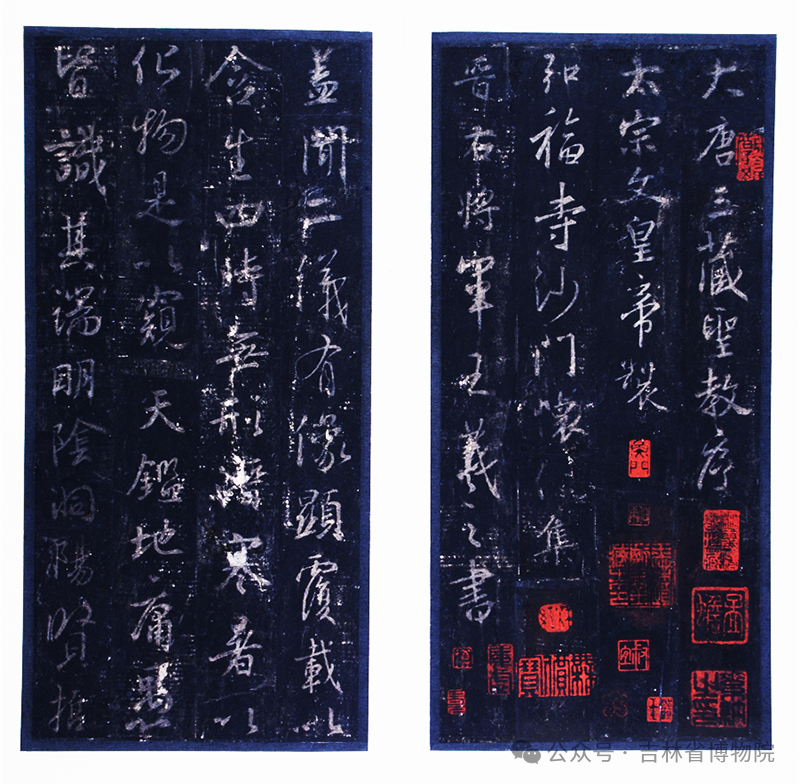 大唐三藏聖教序
太宗文皇帝製
弘福寺沙門懷仁集
晉右將軍王羲之書
蓋聞二儀有像顯覆載以
含生四時無形潛寒暑以
化物是以窺天鑑地庸愚
皆識其端明陰洞陽賢哲
公众号·吉林省博物院